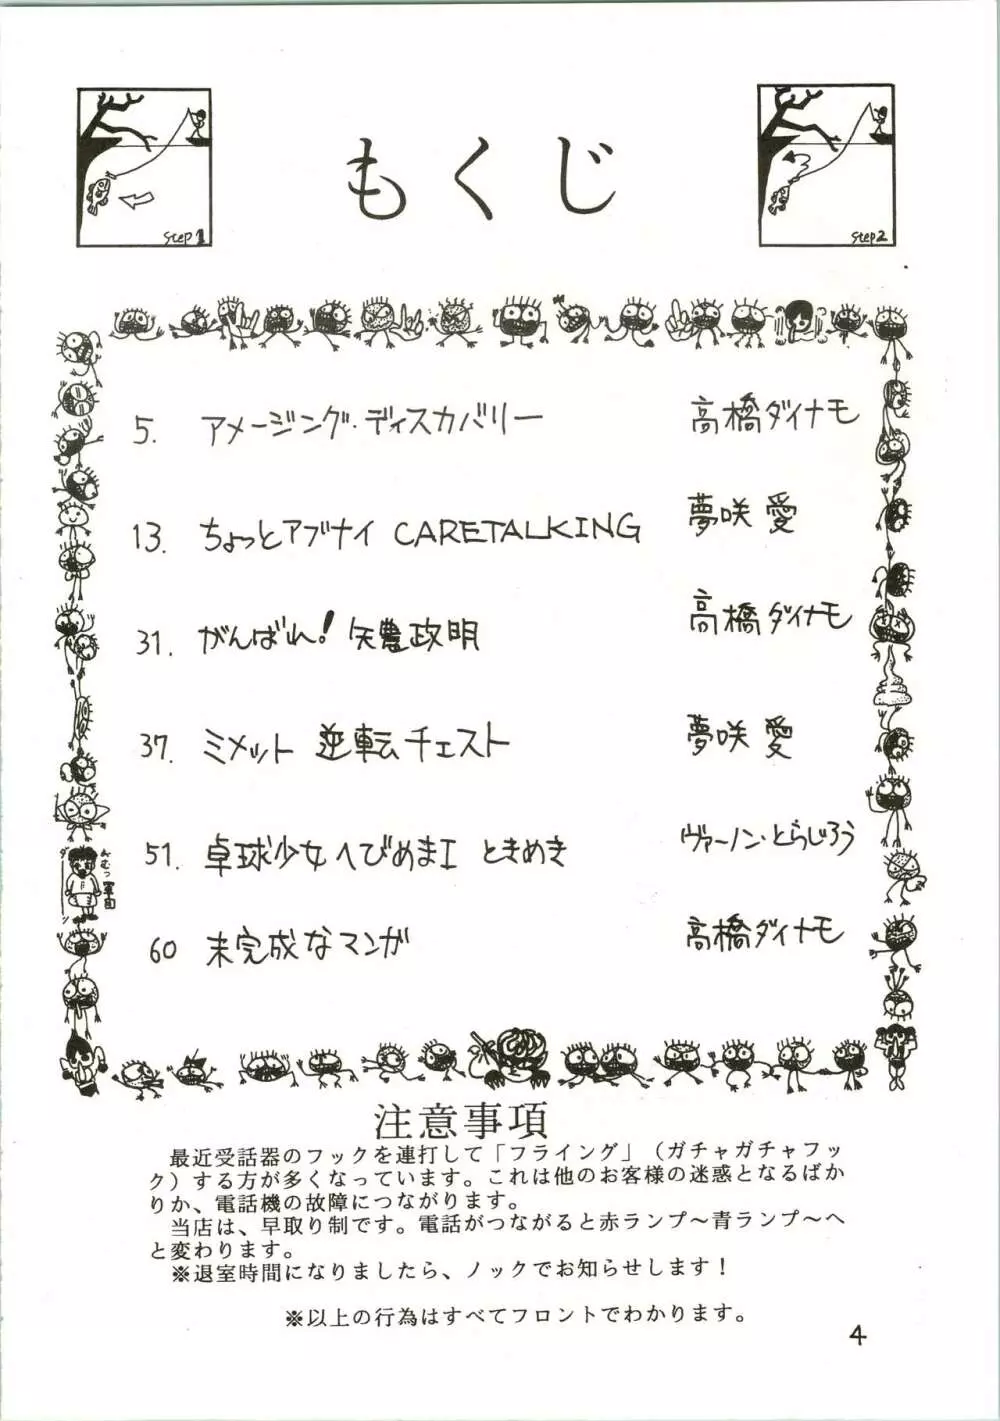 もくじ
Step 1
Step 2
5. アメージング・ディスカバリー 高橋ダイナモ
13. ちょっとアブナイ CARETALKING 夢咲 愛
31. がんばれ! 矢豊政明 高橋ダイナモ
37. ミメット 逆転チェスト 夢咲 愛
51. 卓球少女へびめまI ときめき ヴァーノン・とらじろう
60 未完成なマンガ 高橋ダイナモ
軍団
注意事項
最近受話器のフックを連打して「フライング」(ガチャガチャフッ
ク)する方が多くなっています。これは他のお客様の迷惑となるばか
りか、電話機の故障につながります。
当店は、早取り制です。電話がつながると赤ランプ〜青ランプ〜へ
と変わります。
※退室時間になりましたら、ノックでお知らせします!
※以上の行為はすべてフロントでわかります。
4